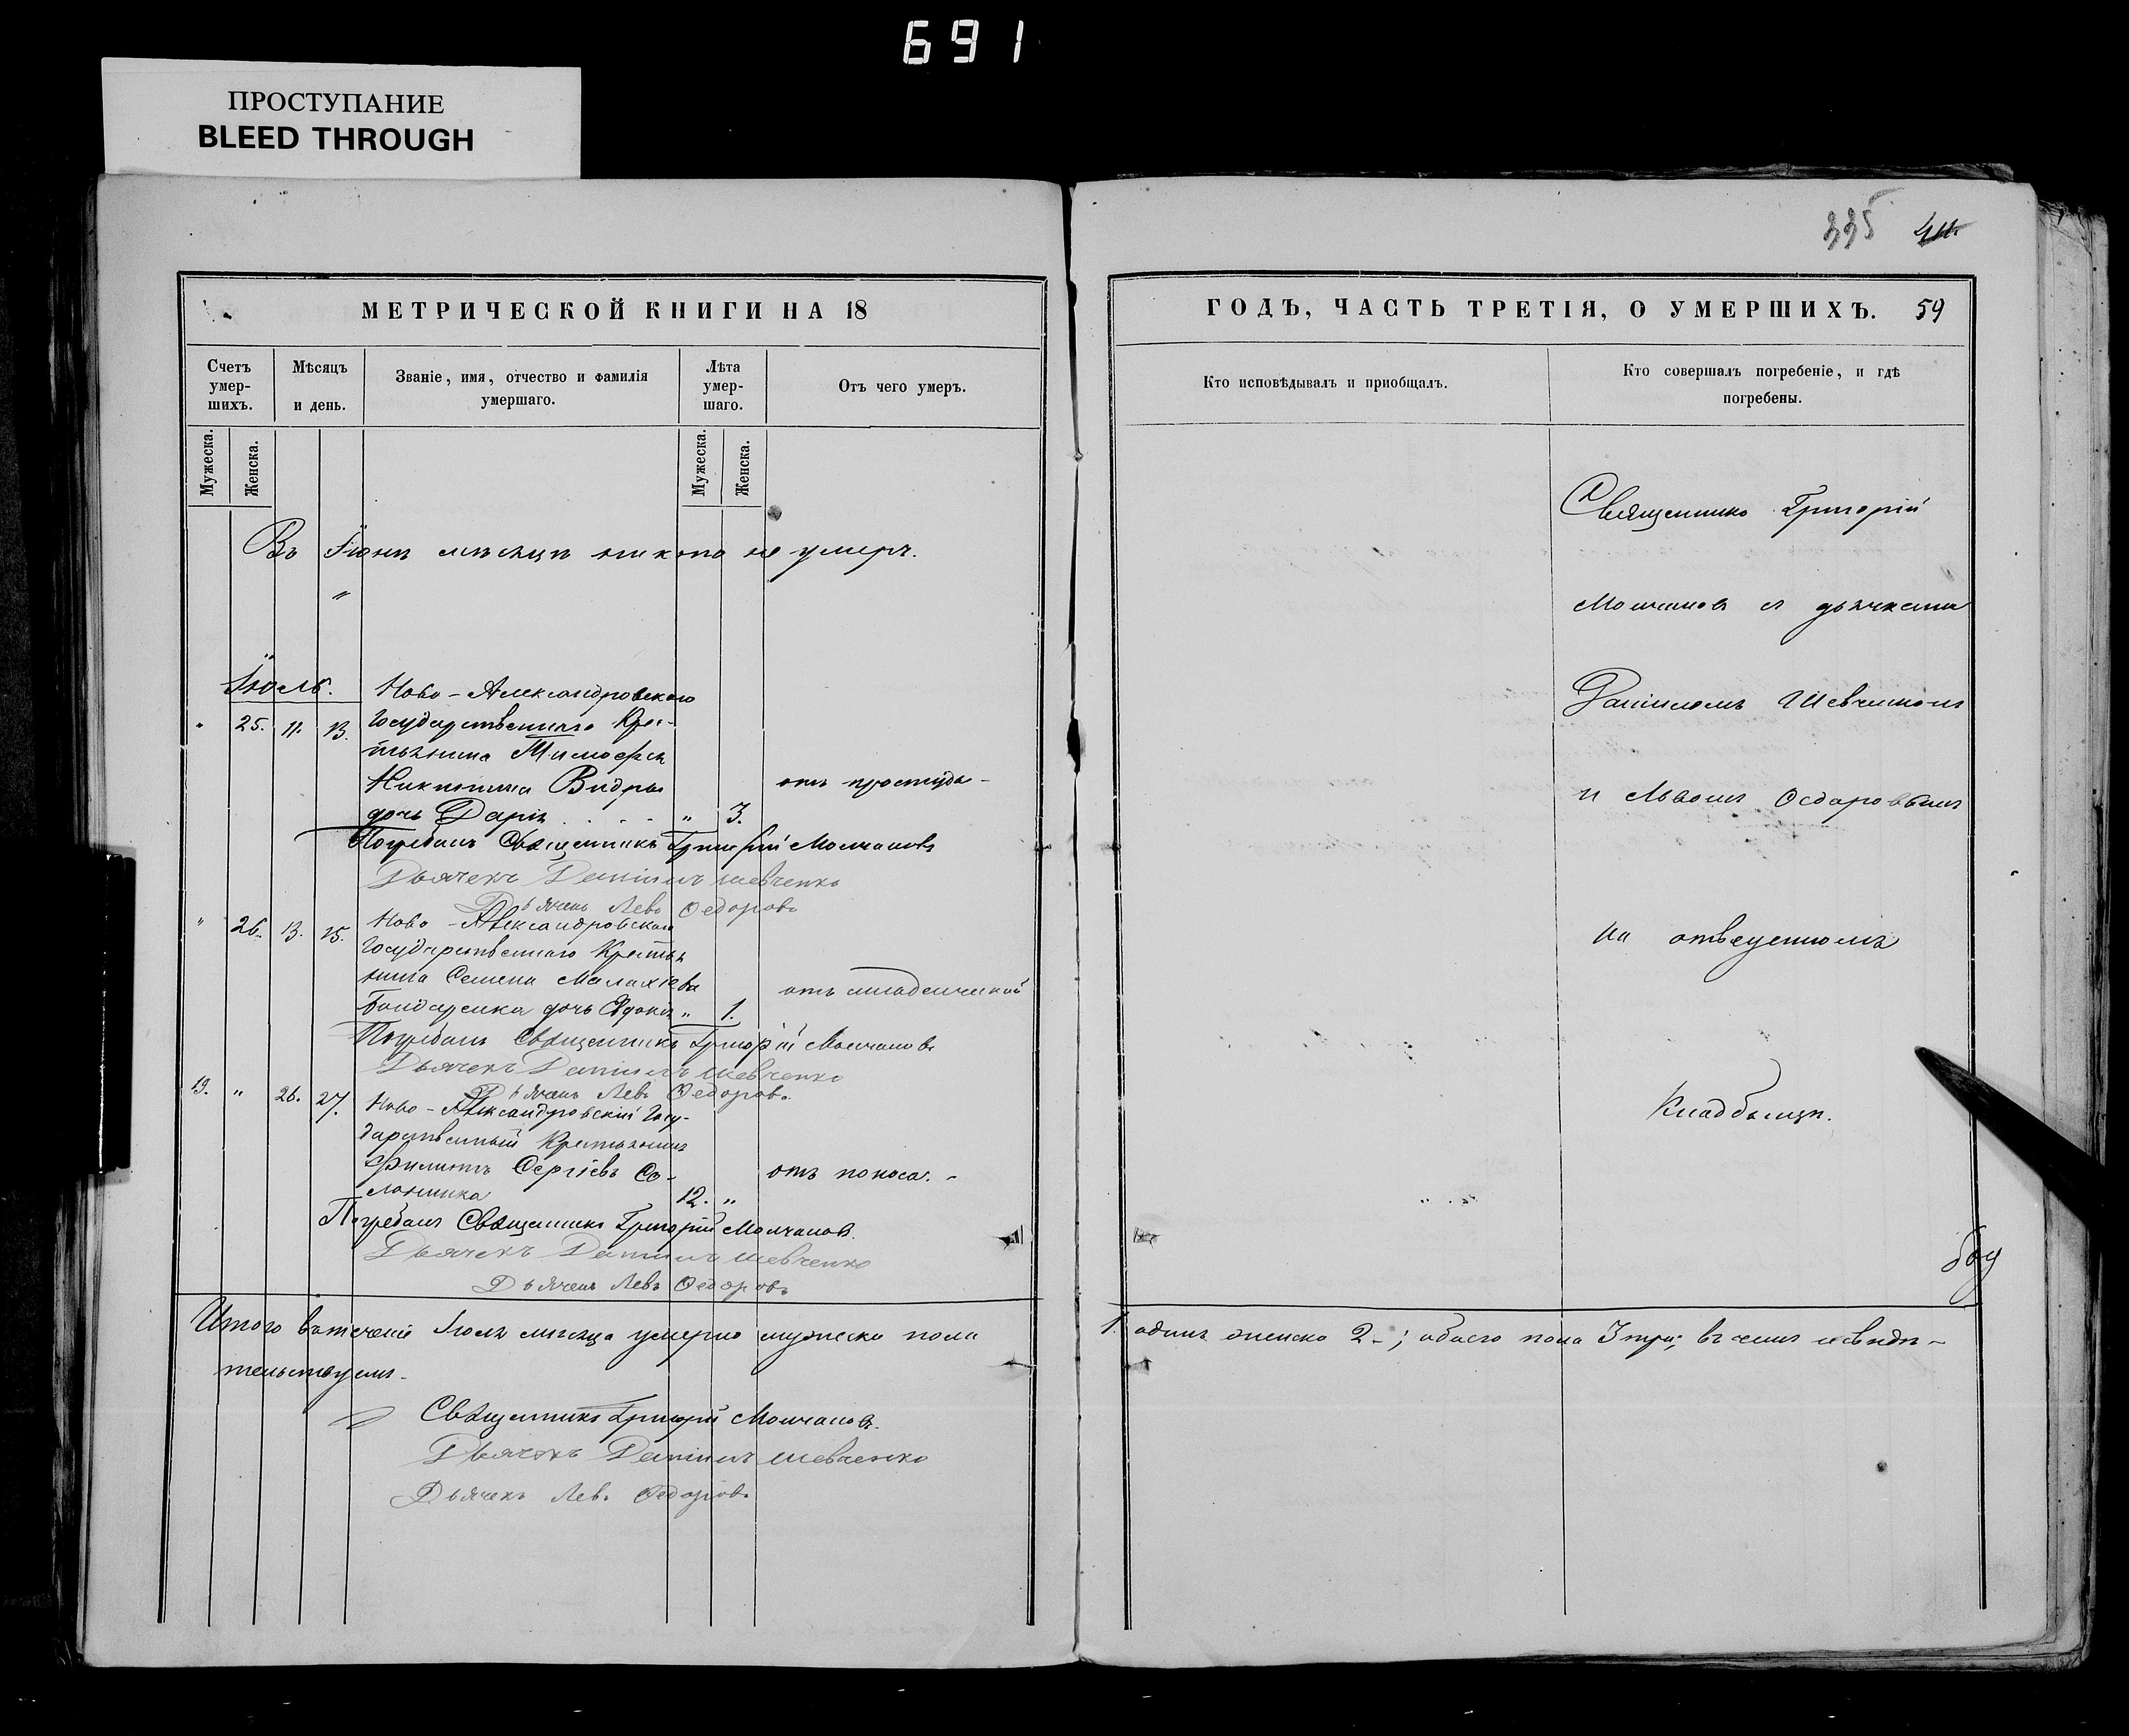 691
ПРОСТУПАНИЕ
BLEED THROUGH
335
МЕТРИЧЕСКОЙ КНИГИ НА 18
Счетъ умер-шихъ.
Мѣсяцъ и день.
Званіе, имя, отчество и фамилія умершаго.
Лѣта умер-шаго.
Отъ чего умеръ.
Мужеска.
Женска.
Мужеска.
Женска.
Въ Іюнѣ мѣсяцѣ никто не умеръ.
"
Іюль.
Ново-Александровскаго
" 25. 11. 13. Государственнаго Крес-
тьянина Тимофея
Никитина Видры отъ простуды-
дочь Дарія . . . . " 3.
Погребалъ Священникъ Григорій Молчановъ
Дьячекъ Даніилъ Шевченко
Дьячекъ Левъ Федоровъ
" 26. 13. 15. Ново-Александровскаго
Государственнаго Крестья
нина Семена Малахіева отъ младенческой
Бондаренка дочь Евдокія " 1.
Погребалъ Священникъ Григорій Молчановъ
Дьячекъ Даніилъ Шевченко
Дьячекъ Левъ Федоровъ.
19. " 26. 27. Ново-Александровскій Госу-
дарственный Крестьянинъ
Филиппъ Сергіевъ Со- отъ поноса.-
12. "
Погребалъ Священникъ Григорій Молчановъ.
Дьячекъ Даніилъ Шевченко
Дьячекъ Левъ Федоровъ
Итого въ теченіе Іюля мѣсяца умерло мужеска пола
тельствуемъ-
Священникъ Григорій Молчановъ.
Дьячекъ Даніилъ Шевченко
Дьячекъ Левъ Федоровъ
ГОДЪ, ЧАСТЬ ТРЕТІЯ, О УМЕРШИХЪ. 59
Кто исповѣдывалъ и пріобщалъ.
Кто совершалъ погребеніе, и гдѣ погребены.
Священникъ Григорій
Молчановъ съ дьячками
Даніиломъ Шевченкомъ
и Львомъ Федоровымъ
на отведенномъ
Кладбищѣ.
1. одинъ женска 2-; обоего пола 3 три; въ чемъ и свидѣ-